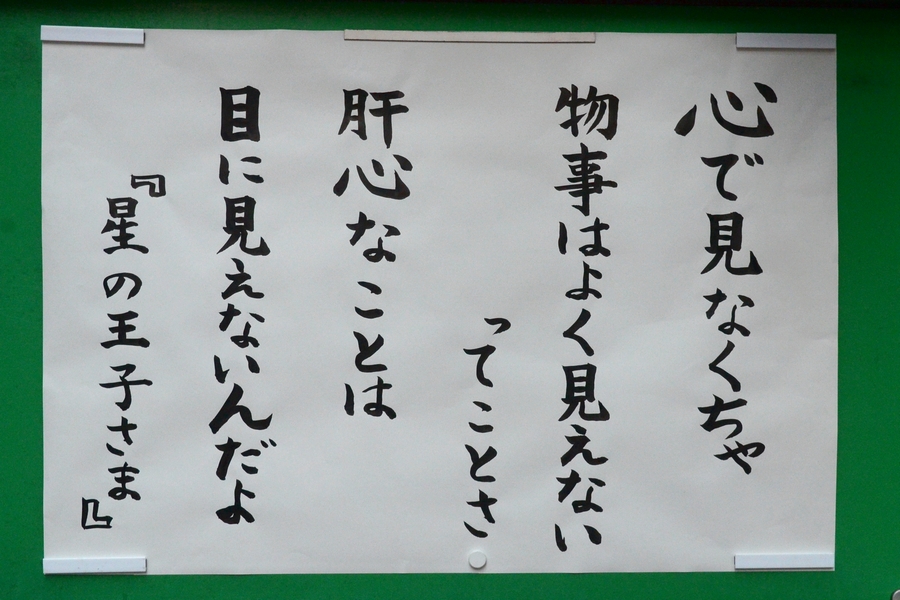 心で見なくちゃ
物事はよく見えない
ってことさ
肝心なことは
目に見えないんだよ
『星の王子さま』